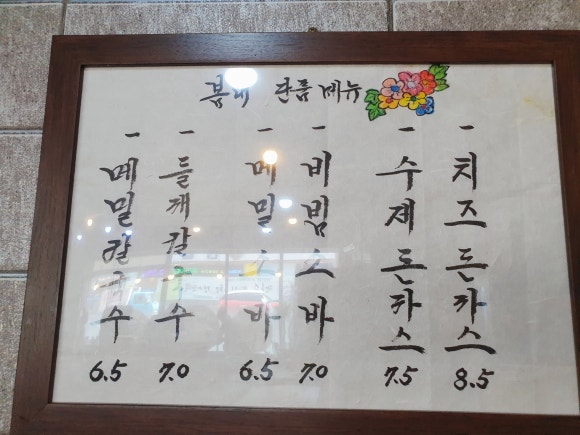 단품메뉴
- 메밀칼국수 6.5
- 들깨칼국수 7.0
- 메밀소바 6.5
- 비빔소바 7.0
- 수제돈카스 7.5
- 치즈돈카스 8.5